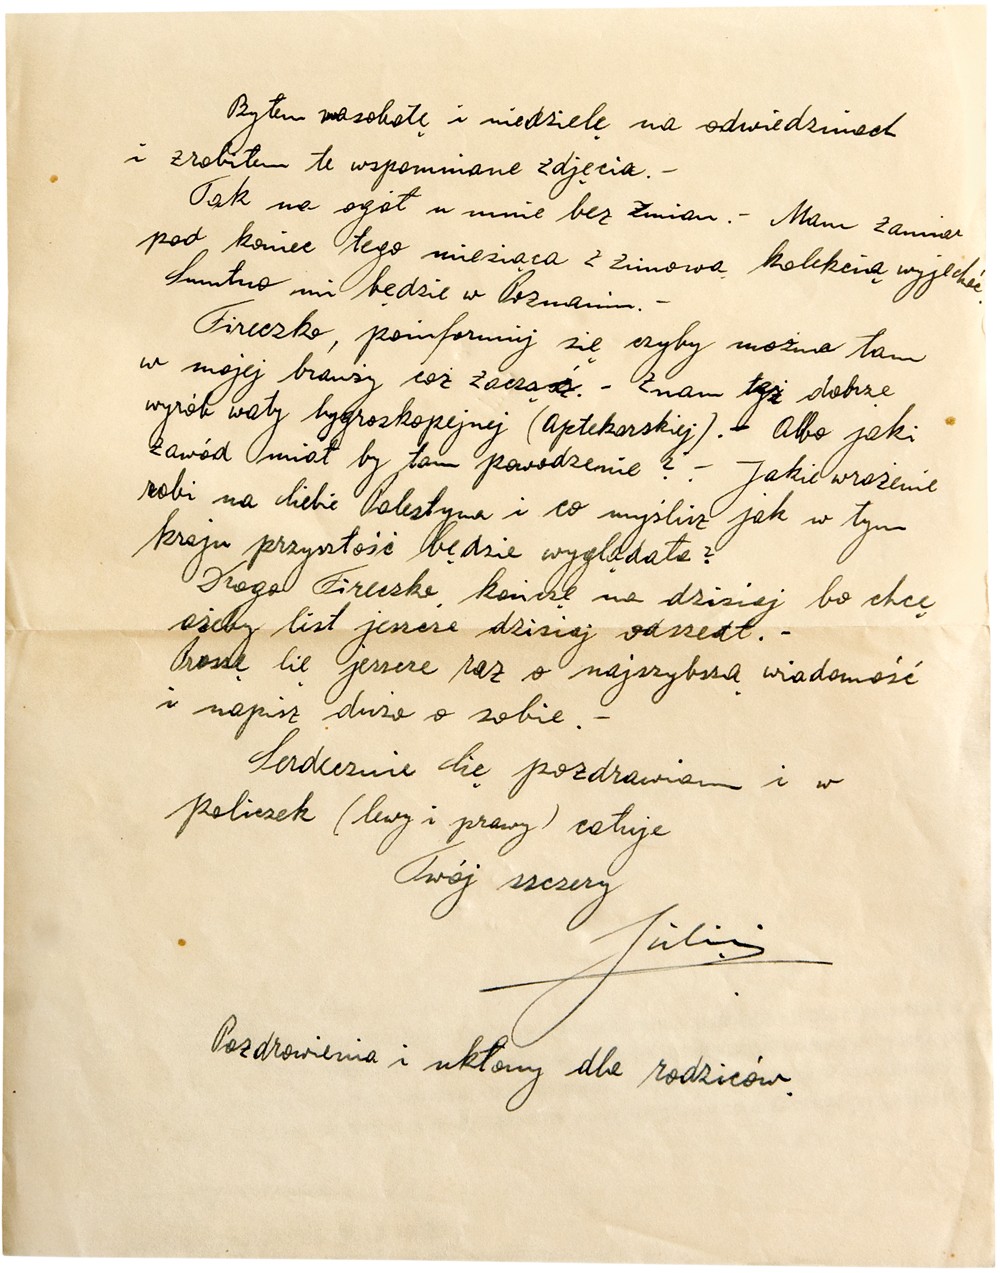 Byłem na sobotę i niedzielę na odwiedzinach
i zrobiłem te wspomniane zdjęcia. -
Tak na ogół u mnie bez zmian. - Mam zamiar
pod koniec tego miesiąca z zimową kolekcją wyjechać.
Smutno mi będzie w Poznaniu. -
Fireczko, poinformuj się czyby można tam
w mojej branży coś zacząć. - Znam też dobrze
wyrób waty hygroskopejnej (Aptekarskiej). - Albo jaki
zawód miał by tam powodzenie? - Jakie wrażenie
robi na Ciebie Palestyna i co myślisz jak w tym
kraju przyszłość będzie wyglądała?
Droga Fireczko, kończę na dzisiaj bo chcę
ażeby list jeszcze dzisiaj odszedł. -
Proszę Cię jeszcze raz o najszybszą wiadomość
i napisz dużo o sobie. -
Serdecznie Cię pozdrawiam i w
policzek (lewy i prawy) całuje
Twój szczery
Pozdrowienia i ukłony dla rodziców.